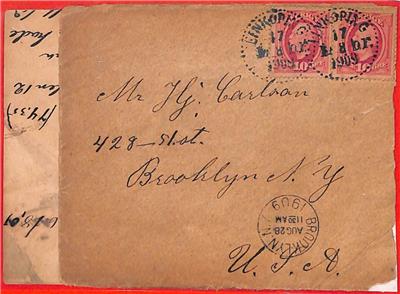 LINKÖPING
17
8
1909
LINKÖPING
17
8
1909
10
Mr Hj. Carlson
428 – 51 st.
Brooklyn N.Y
U.S.A.
BROOKLYN, N.Y.
AUG 28
11 30 AM
1909